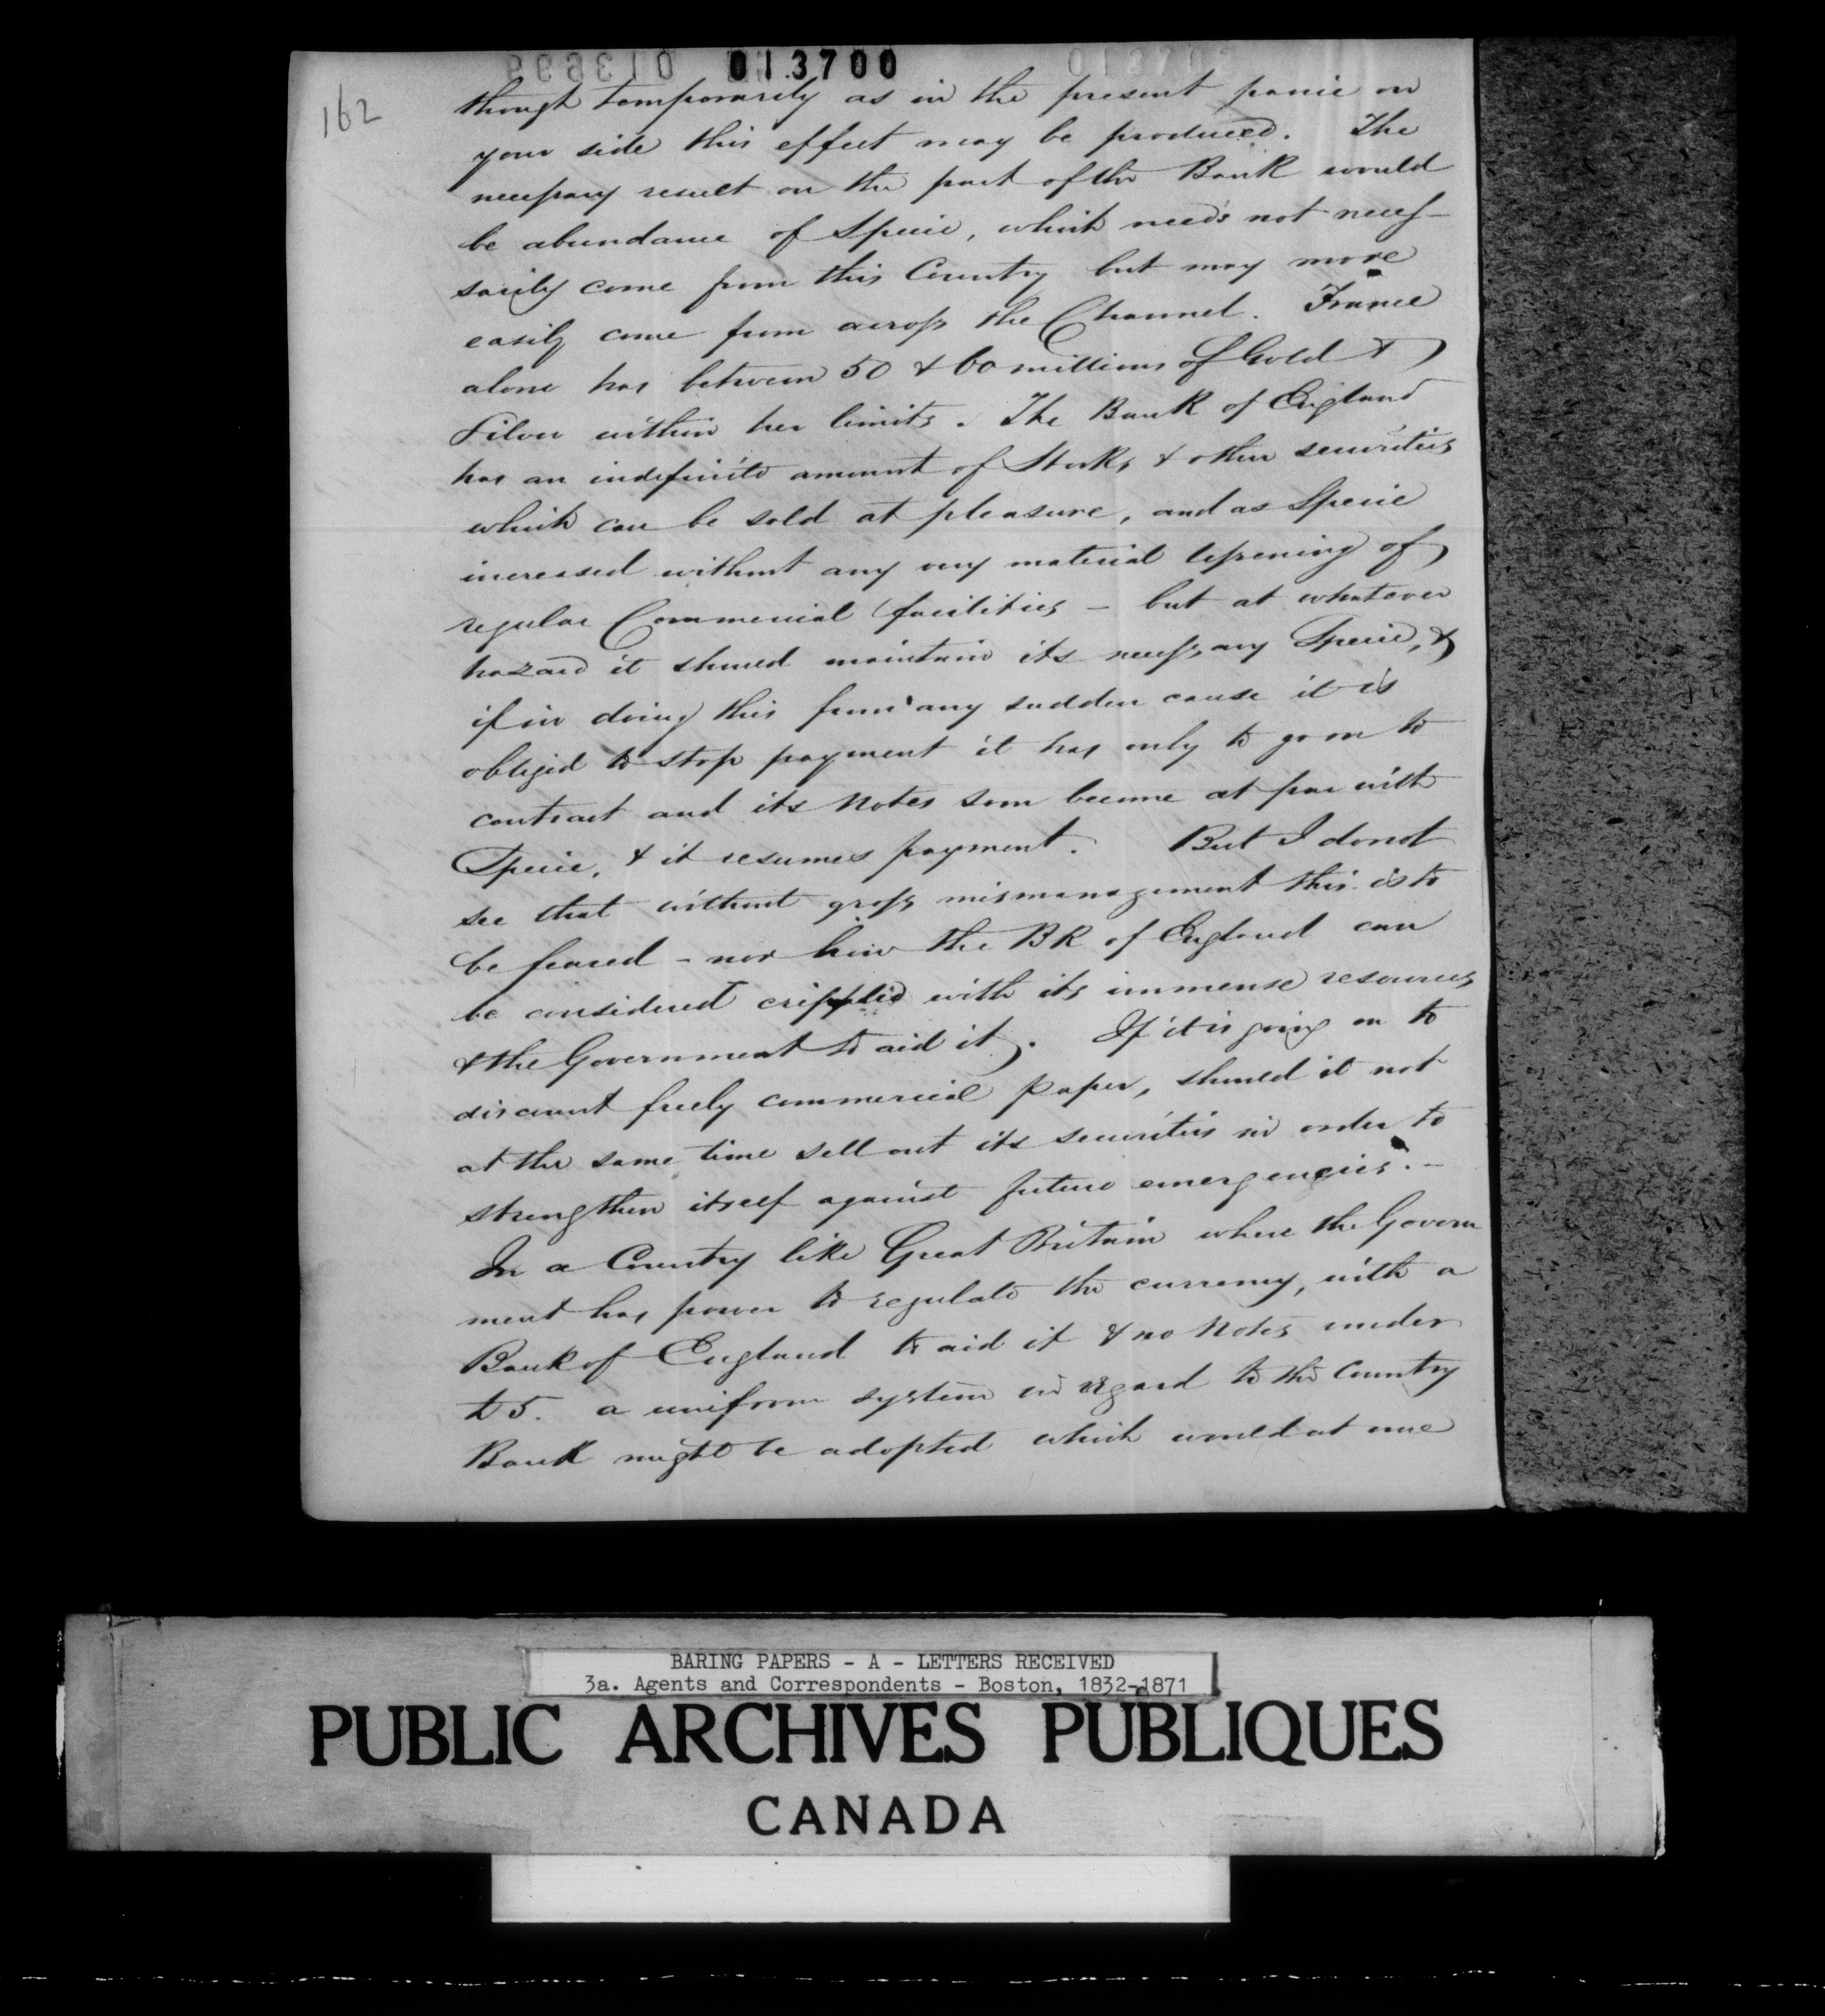 013700
162
though temporarily as in the present panic on
your side this effect may be produced. The
necessary result on the part of the Bank would
be abundance of Specie, which needs not neces-
sarily come from this Country but may more
easily come from across the Channel. France
alone has between 50 & 60 millions of Gold &
Silver within her limits. The Bank of England
has an indefinite amount of Stocks & other securities
which can be sold at pleasure, and as Specie
increased without any very material lessening of
regular Commercial facilities - but at whatever
hazard it should maintain its necessary Specie, &
if in doing this from any sudden cause it is
obliged to stop payment it has only to go on to
contract and its Notes soon become at par with
Specie, & it resumes payment. But I do not
see that without gross mismanagement this is to
be feared - nor how the BK of England can
be considered crippled with its immense resources
& the Government to aid it. If it is going on to
discount freely commercial paper, should it not
at the same time sell out its securities in order to
strengthen itself against future emergencies. -
In a Country like Great Britain where the Govern
ment has power to regulate the currency, with a
Bank of England to aid it & no Notes under
£5. a uniform system in regard to the Country
Bank might be adopted which would at once
BARING PAPERS - A - LETTERS RECEIVED
3a. Agents and Correspondents - Boston, 1832-1871
PUBLIC ARCHIVES PUBLIQUES
CANADA